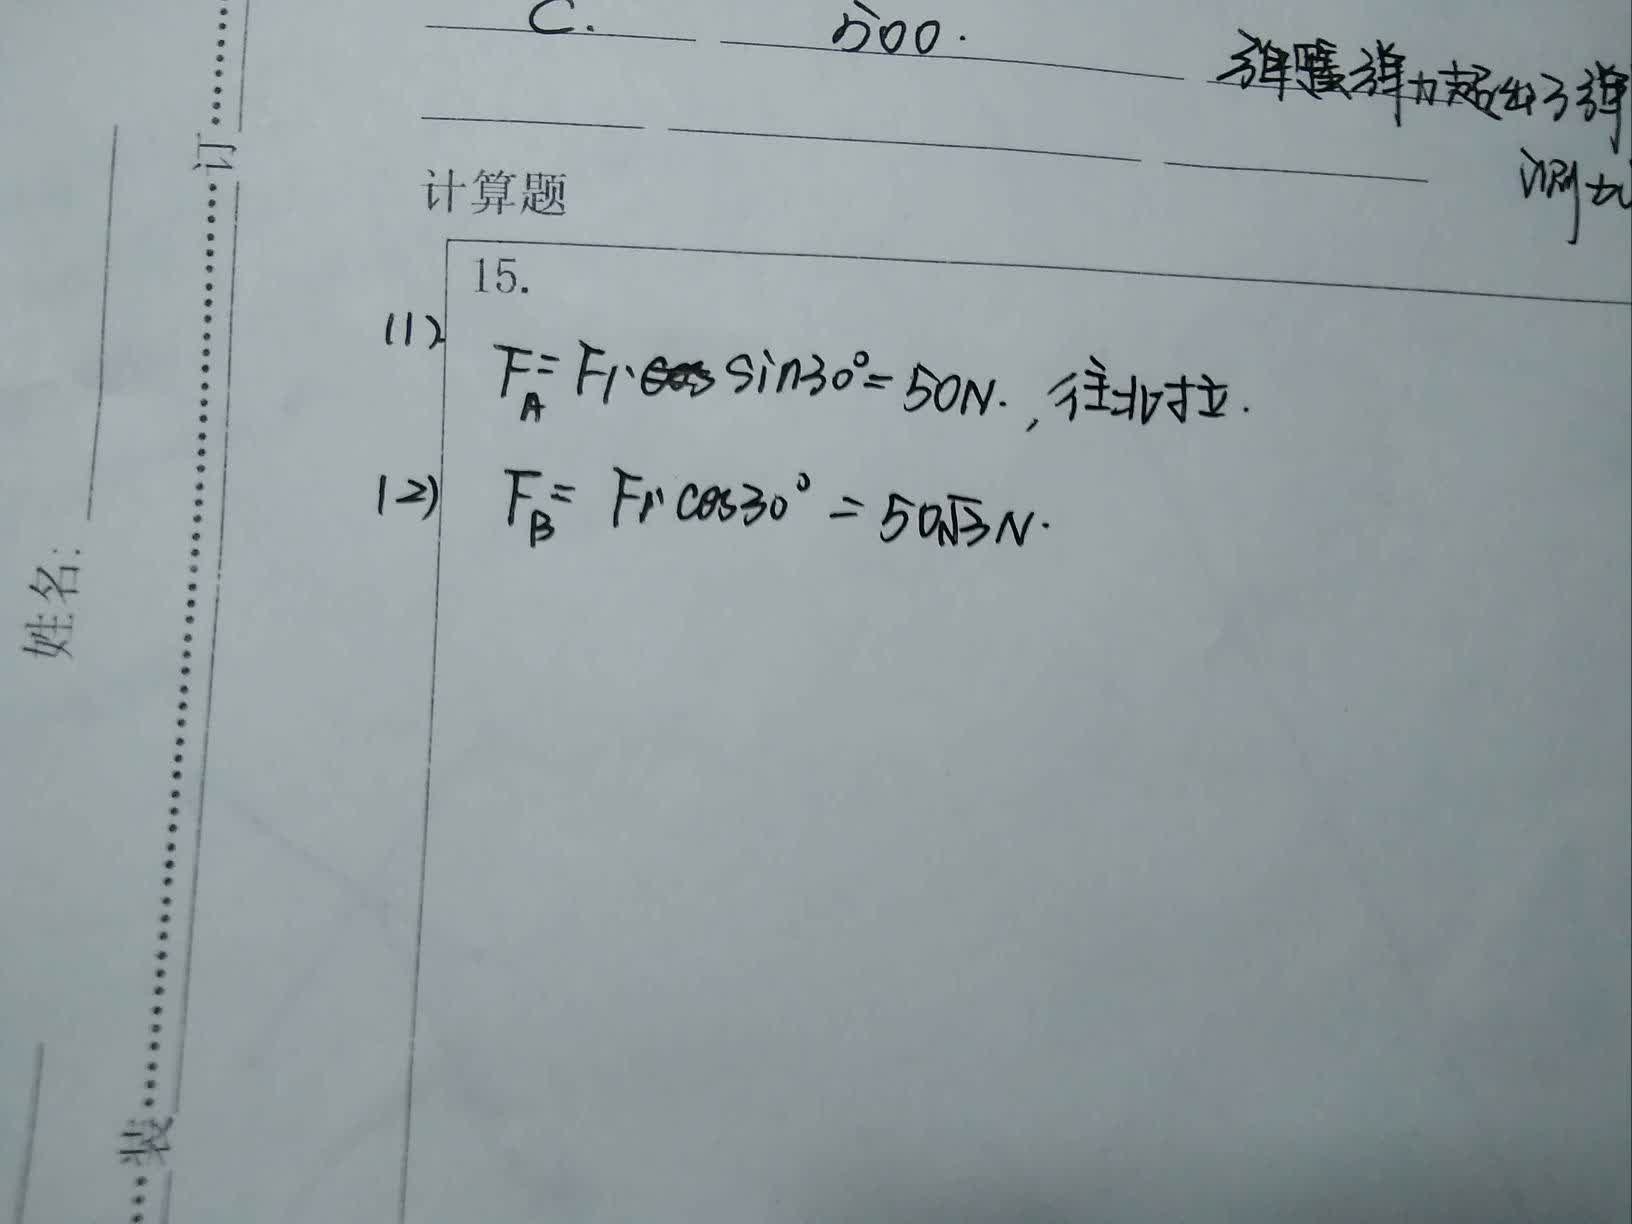 C. 500. 弹簧弹力超出了弹
测力
计算题
15.
(1) F_A = F₁·sin30°=50N. ,往北拉.
(2) F_B = F₁·cos30° = 50√3N.
订
姓名:
装